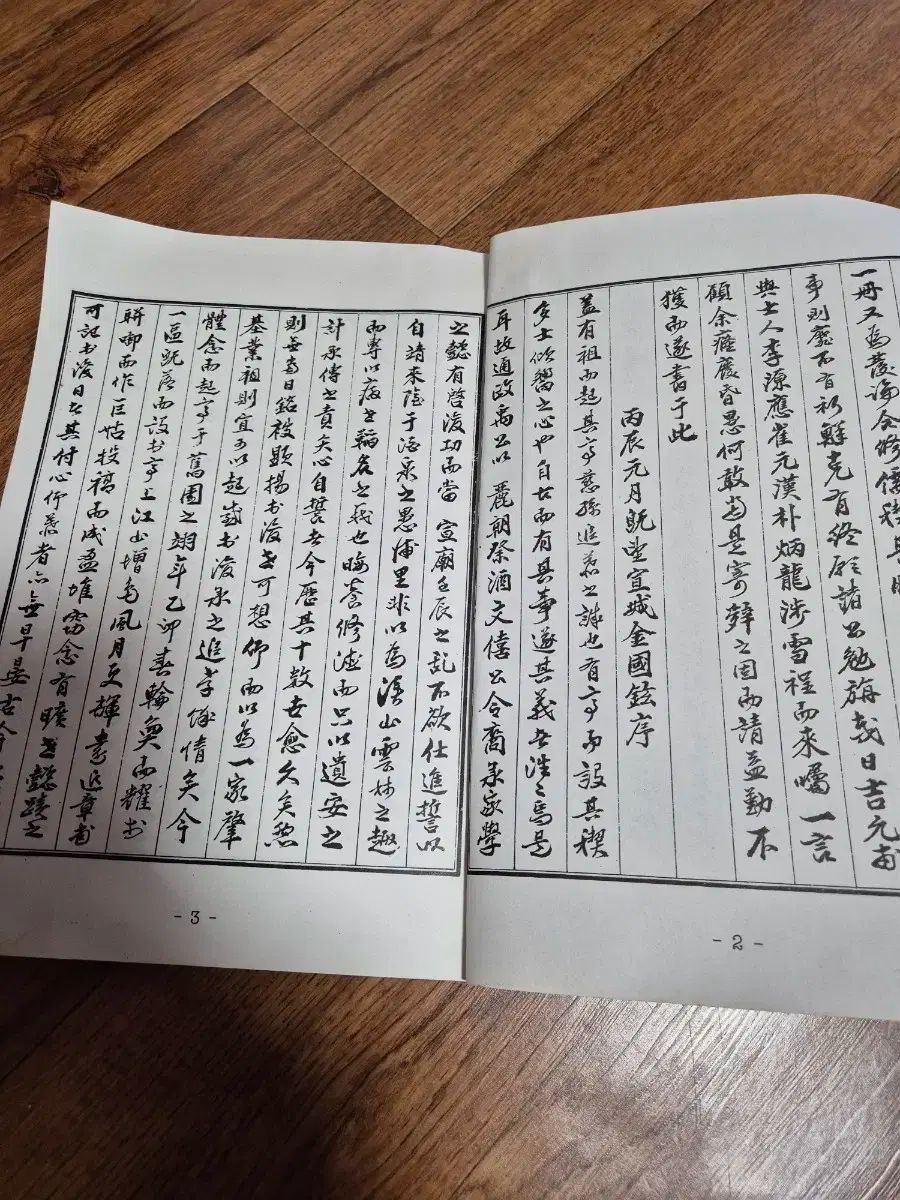 一冊又為
事則靡不有初鮮克有終願諸公勉旃哉日吉元甫
與士人李源應崔元漢朴炳龍涉雪程而來囑一言
顧余癃廢昏愚何敢當是寄辭之固而請益勤不
獲而遂書于此
丙辰元月既望宣城金國鉉序
蓋有祖而起其亭慈孫追慕之誠也有亭而設其稧
多士欽嚮之心也自古而有其事遂其義者滔滔焉是
耳故通政禹公以 麗朝祭酒文僖公令裔承家學
之懿有啓後功而當 宣廟壬辰之亂不欲仕進誓以
自靖來蔭于浯泉之愚浦里非以為溪山雲林之趣
而專以疾世稱名之義也晦養修德而只以遺安之
計承傳之責矣心自誓者今歷其十數世愈久矣
則無當日銘被顯揚於後世可想仰而以為一家肇
基業祖則宜可以起感於後承之追孝惟情矣今
體念而起亭于舊園之翊年乙卯春輪奐而耀於
一區既為而設於亭上江山增色風月更輝
聯啣而作巨姑投稿而成盈堆窃念有曠世懿蹟之
可記於後日者其付心仰慕者亦無早晏古今
- 3 -
- 2 -